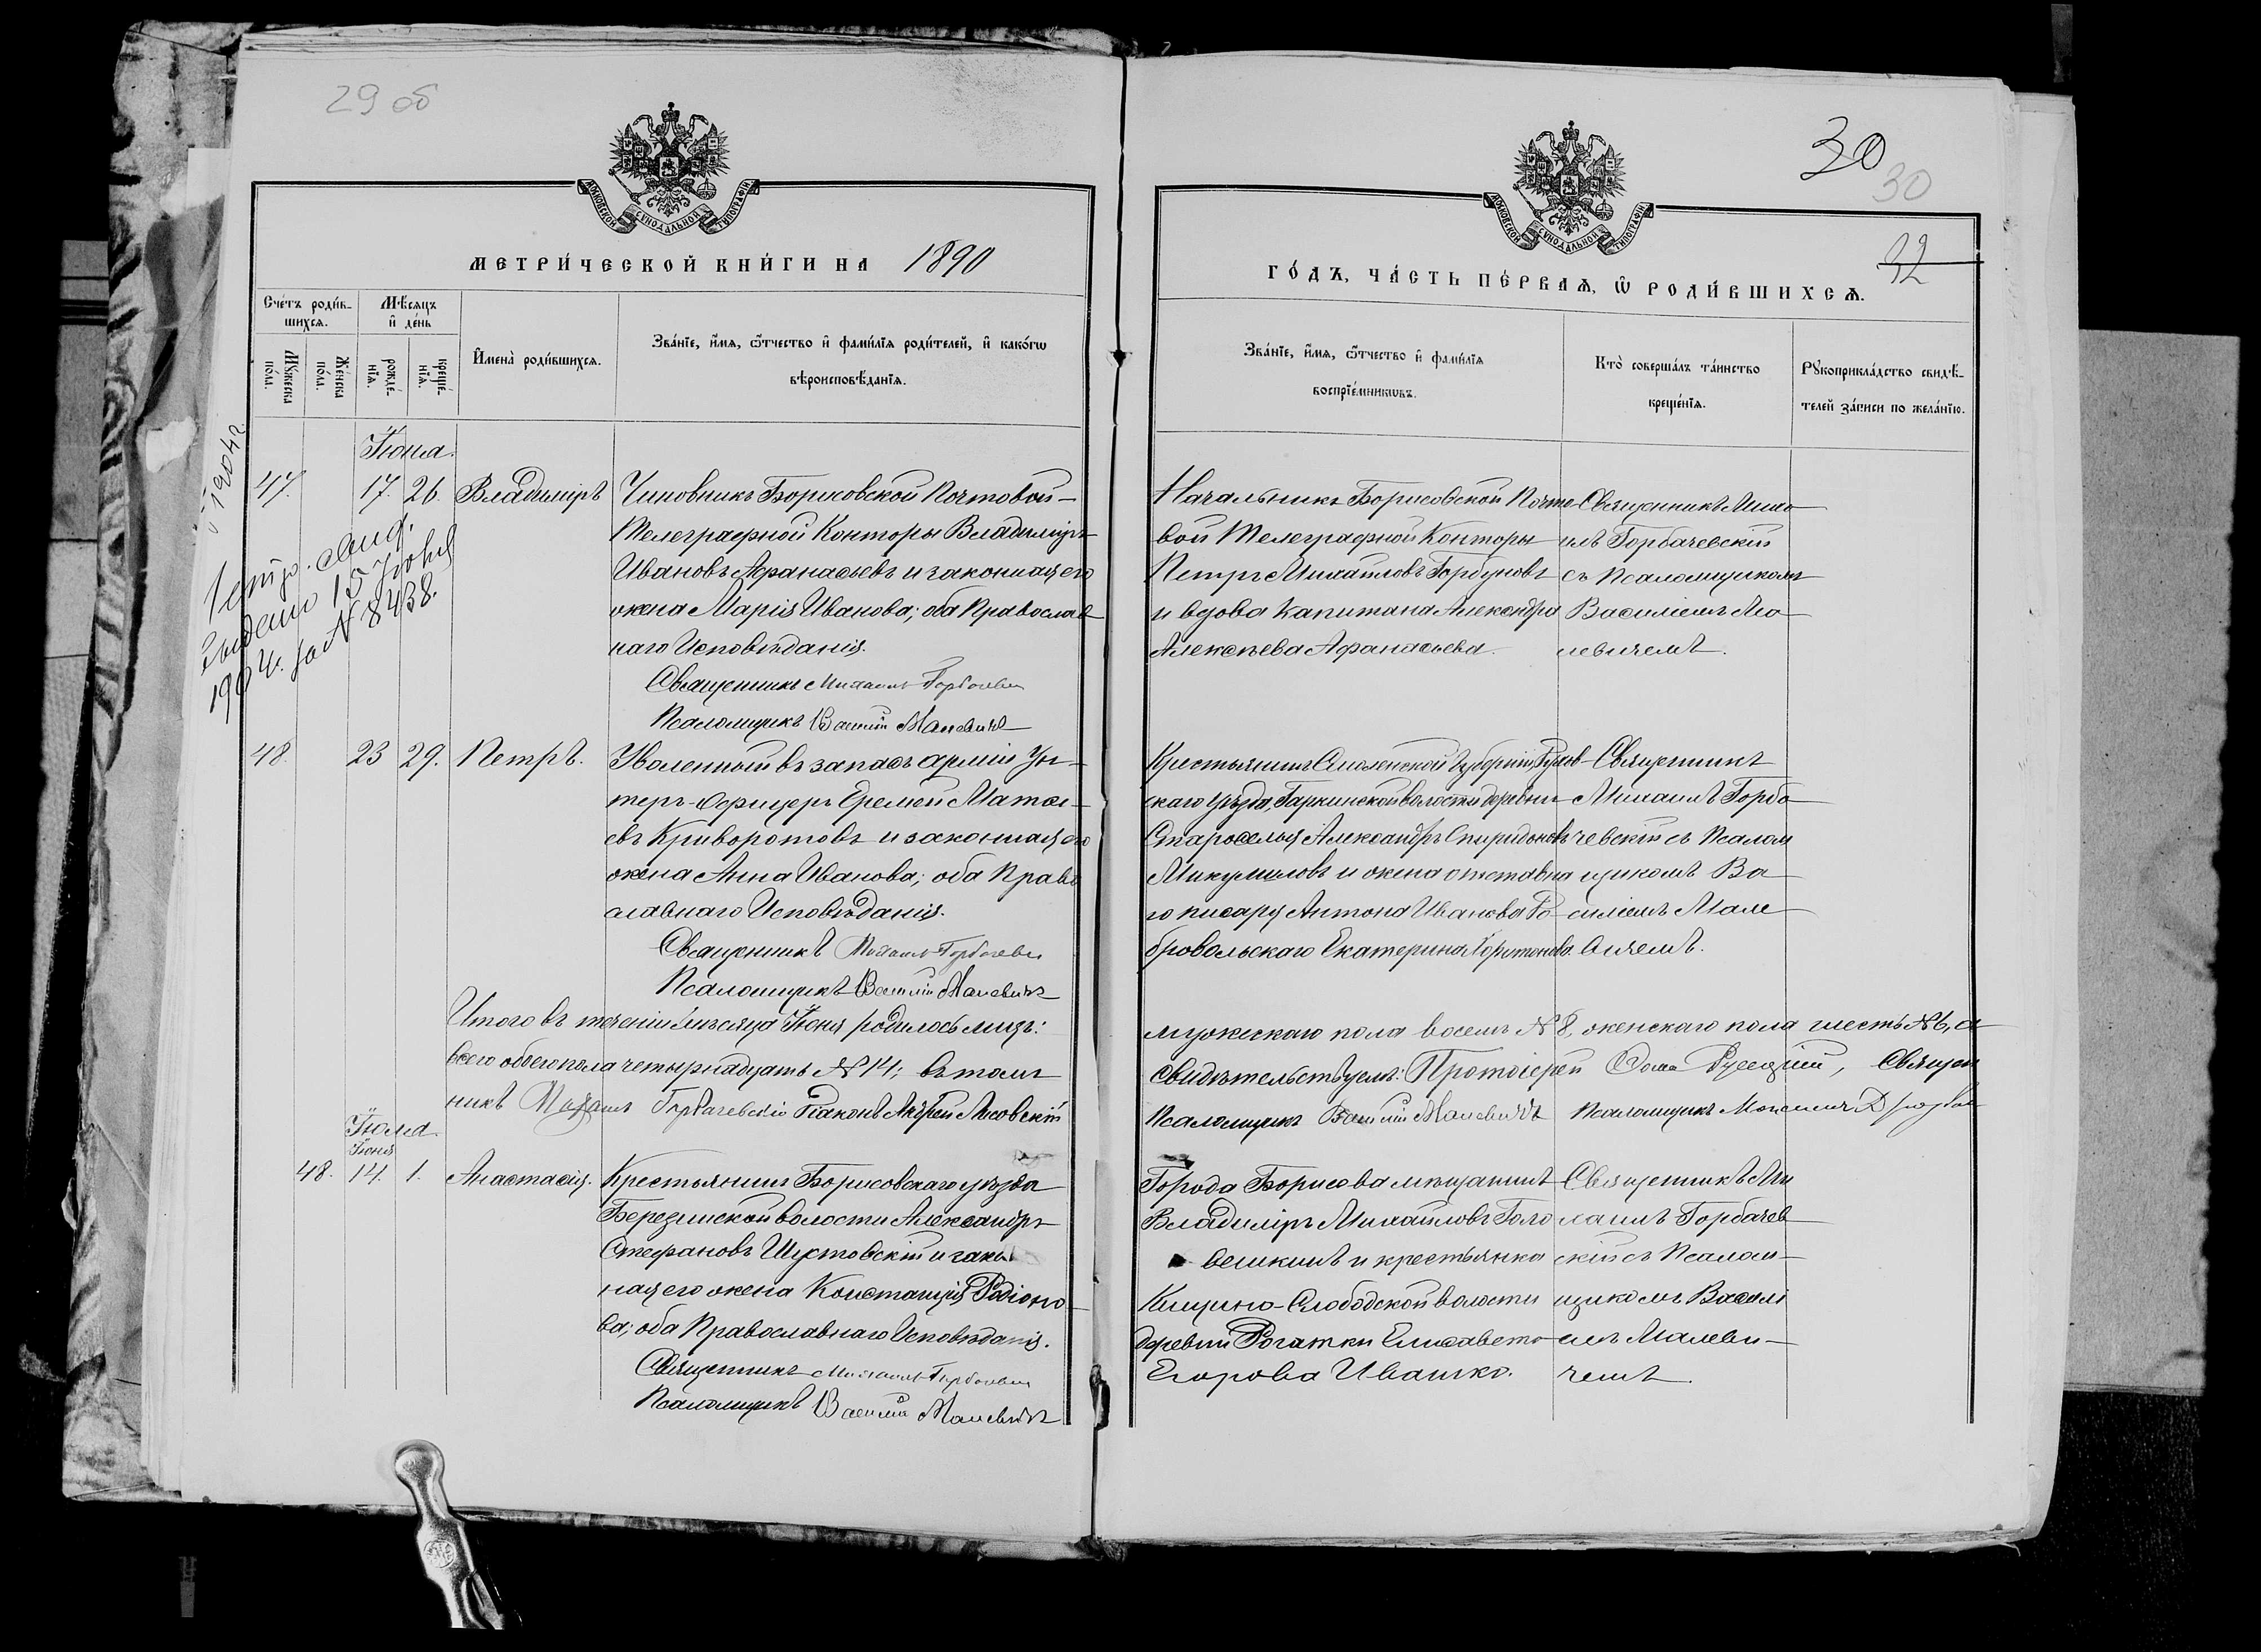 29 об
МОСКОВСКОЙ СѴНОДАЛЬНОЙ ТИПОГРАФІИ
МЕТРИ́ЧЕСКОЙ КНИ́ГИ НА 1890
Сче́тъ роди́в-
шихсѧ.
Мѣ́сѧцъ
и҆ де́нь
Мꙋ́жеска
по́ла.
Же́нска
по́ла.
рожде́-
нїѧ.
креще́-
нїѧ.
И҆мена̀ роди́вшихсѧ.
Зва́нїе, и҆́мѧ, ѻ҆́тчество и҆ фами́лїѧ роди́телей, и҆ како́гѡ
вѣроисповѣ́данїѧ.
Іюня.
47. 17. 26. Владиміръ
Чиновникъ Борисовской Почтовой-
Телеграфной Конторы Владиміръ
Ивановъ Афанасьевъ и законная его
жена Марія Иванова; оба Православ
наго Исповѣданія.
Священникъ Михаилъ Горбачевскій
Псаломщикъ Василій Малевичъ
1904г.
выдано 15 Іюня
1904г. за № 8438.
48. 23 29. Петръ.
Уволенный въ запасъ арміи Ун-
теръ-Офицеръ Еремей Матѳе-
евъ Криворотовъ и законная его
жена Анна Иванова; оба Право
славнаго Исповѣданія.
Священникъ Михаилъ Горбачевскій
Псаломщикъ Василій Малевичъ
Итого въ теченіи мѣсяца Іюня родилось лицъ:
всего обоего пола четырнадцать №14; въ томъ
никъ Михаилъ Горбачевскій Діаконъ Андрей Лисовскій
Іюля.
Іюня
48. 14. 1. Анастасія.
Крестьянинъ Борисовскаго уѣзда
Березинской волости Александръ
Стефановъ Шустовскій и закон
ная его жена Констанція Родіоно-
ва; оба Православнаго Исповѣданія.
Священникъ Михаилъ Горбачевскій
Псаломщикъ Василій Малевичъ
30
30
32
МОСКОВСКОЙ СѴНОДАЛЬНОЙ ТИПОГРАФІИ
ГО́ДЪ, ЧА́СТЬ ПЕ́РВАѦ, Ѡ҆ РОДИ́ВШИХСѦ.
Зва́нїе, и҆́мѧ, ѻ҆́тчество и҆ фами́лїѧ
воспрїе́мникѡвъ.
Кто̀ соверша́лъ та́инство
креще́нїѧ.
Рꙋкоприкла́дство свидѣ́-
телей за́писи по жела́нїю.
Начальникъ Борисовской Почто-
вой Телеграфной Конторы
Петръ Михайловъ Горбуновъ
и вдова Капитана Александра
Алексѣева Афанасьева.
Священникъ Миха
илъ Горбачевскій
съ Псаломщикомъ
Василіемъ Ма
левичемъ.
Крестьянинъ Смоленской губерніи
скаго уѣзда, волости деревни
Староселья Александръ Спиридоновъ
Микулиловъ и жена отставна
го писаря Антона Иванова До
бровольскаго Екатерина Харитонова.
Священникъ
Михаилъ Горба
чевскій съ Псалом
щикомъ Ва
силіемъ Мале
вичемъ.
мужескаго пола восемь №8, женскаго пола шесть №6, а
свидѣтельствуемъ: Протоіерей Священ
Псаломщикъ Василій Малевичъ Псаломщикъ
Города Борисова мѣщанинъ
Владиміръ Михайловъ Голо
вешкинъ и крестьянка
Кищино-Слободской волости
деревни Рогатки Елисавета
Егорова Ивашко.
Священникъ Ми
хаилъ Горбачев
скій съ Псалом-
щикомъ Василі
емъ Малеви-
чемъ.